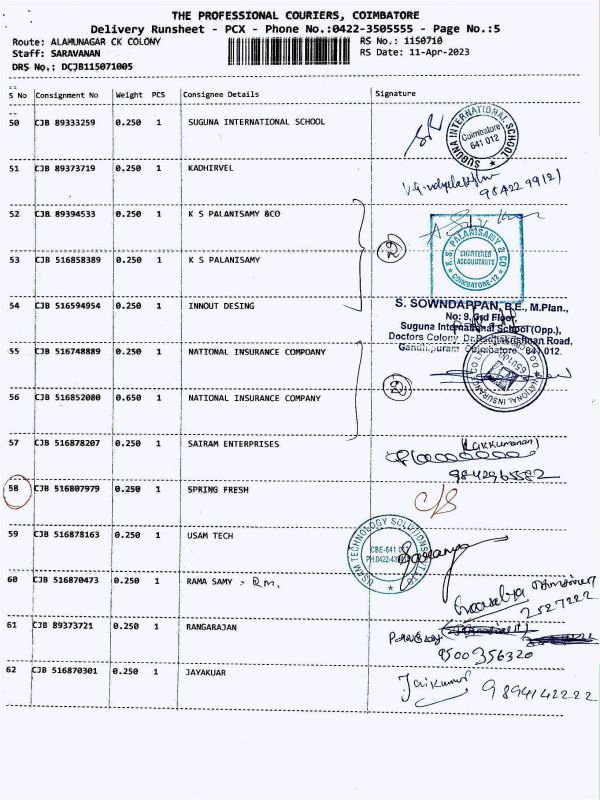 THE PROFESSIONAL COURIERS, COIMBATORE
Delivery Runsheet - PCX - Phone No.:0422-3505555 - Page No.:5
Route: ALAMUNAGAR CK COLONY
RS No.: 1150710
Staff: SARAVANAN
RS Date: 11-Apr-2023
DRS No.: DCJB115071005
S No Consignment No Weight PCS Consignee Details Signature
50 CJB 89333259 0.250 1 SUGUNA INTERNATIONAL SCHOOL
SUGUNA INTERNATIONAL SCHOOL
Coimbatore
641 012
51 CJB 89373719 0.250 1 KADHIRVEL
52 CJB 89394533 0.250 1 K S PALANISAMY &CO
53 CJB 516858389 0.250 1 K S PALANISAMY
K.S. PALANISAMY & CO
CHARTERED
ACCOUNTANTS
COIMBATORE-12
54 CJB 516594954 0.250 1 INNOUT DESING
S. SOWNDAPPAN, B.E., M.Plan.,
No: 9, 3rd Floor,
Suguna International School (Opp.),
Doctors Colony Dr.Radhakrishnan Road,
Gandhipuram Coimbatore 641 012.
55 CJB 516748889 0.250 1 NATIONAL INSURANCE COMPOANY
56 CJB 516852080 0.650 1 NATIONAL INSURANCE COMPANY
NATIONAL INSURANCE CO
57 CJB 516878207 0.250 1 SAIRAM ENTERPRISES
58 CJB 516807979 0.250 1 SPRING FRESH
59 CJB 516878163 0.250 1 USAM TECH
TECHNOLOGY SOLUTIONS
60 CJB 516870473 0.250 1 RAMA SAMY - R.M.
2527222
61 CJB 89373721 0.250 1 RANGARAJAN
9500356320
62 CJB 516870301 0.250 1 JAYAKUAR
Jaikumar 9894142222